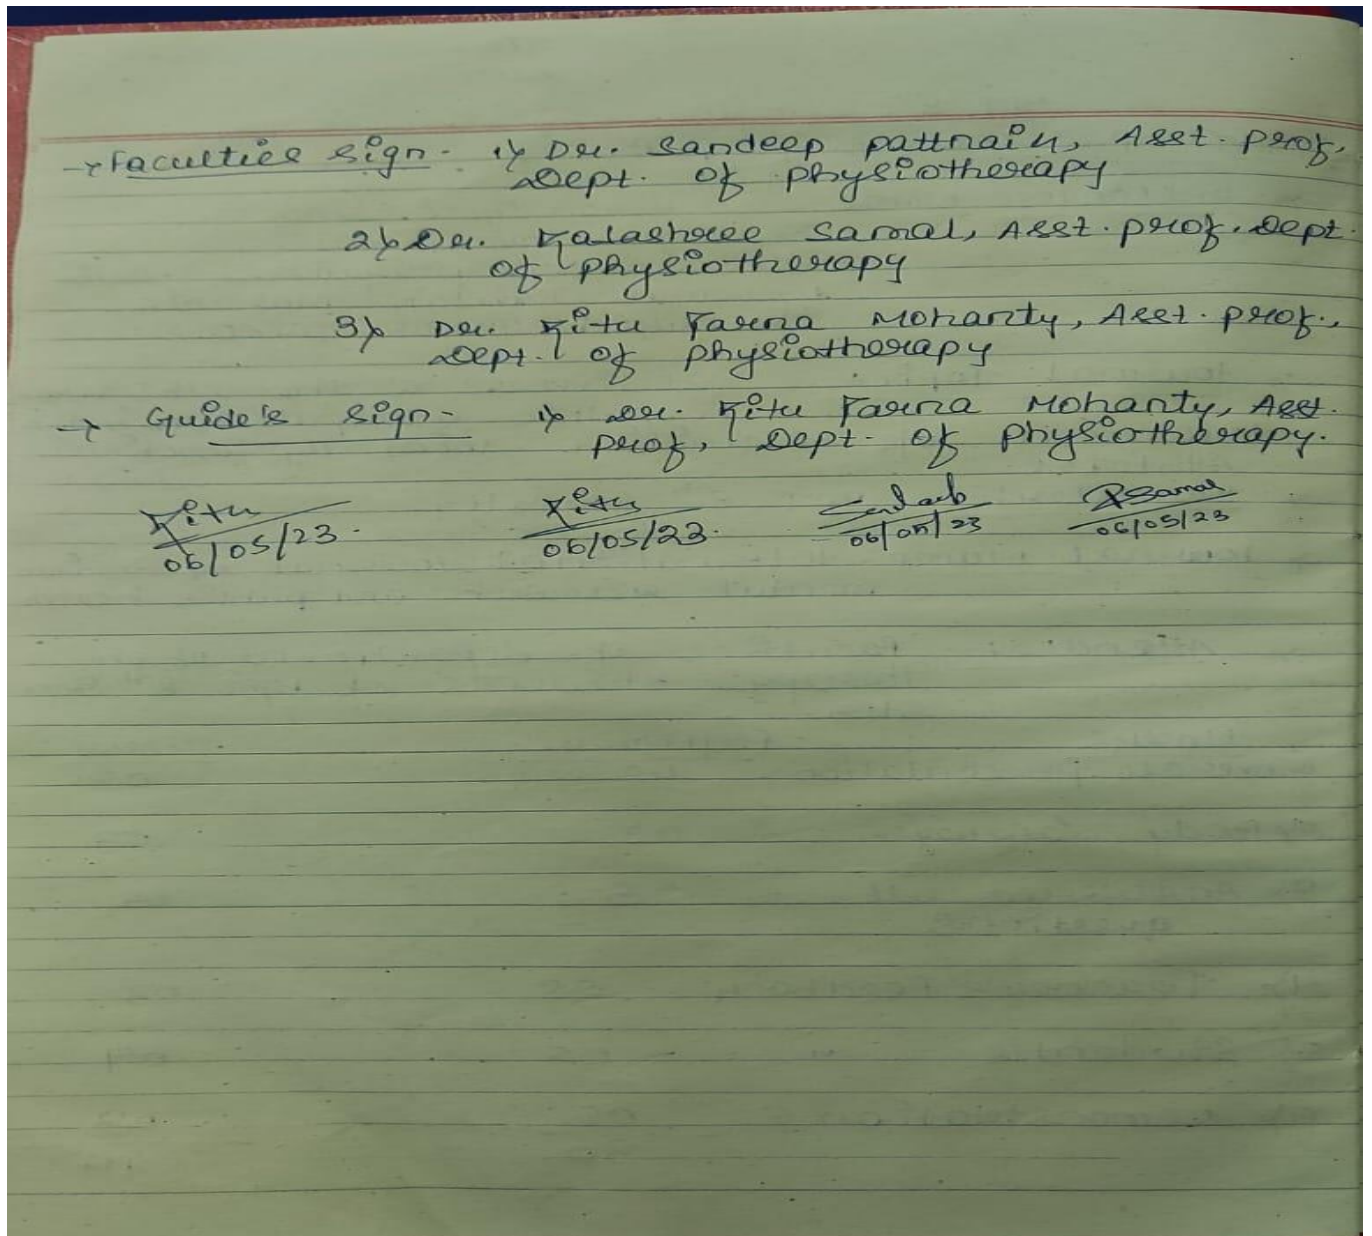 → Faculties sign - 1) Dr. Sandeep Pattnaik, Asst. prof,
Dept. of Physiotherapy
2) Dr. Rajashree Samal, Asst. prof. Dept.
of Physiotherapy
3) Dr. Ritu Parna Mohanty, Asst. prof.,
Dept. of Physiotherapy
→ Guide's sign - 1) Dr. Ritu Parna Mohanty, Asst.
prof, Dept. of Physiotherapy.
Ritu Ritu RSamal
06/05/23. 06/05/23. 06/05/23 06/05/23